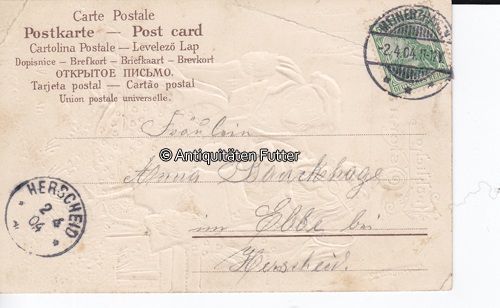 Carte Postale
Postkarte — Post card
Cartolina Postale — Levelező Lap
Dopisnice — Brefkort — Briefkaart — Brevkort
ОТКРЫТОЕ ПИСЬМО.
Tarjeta postal — Cartão postal
Union postale universelle.
MEINERZHAGEN
2.4.04.11-12V.
Fräulein
© Antiquitäten Futter
Anna
im Ebbe bei
Herscheid.
HERSCHEID
2 4
04